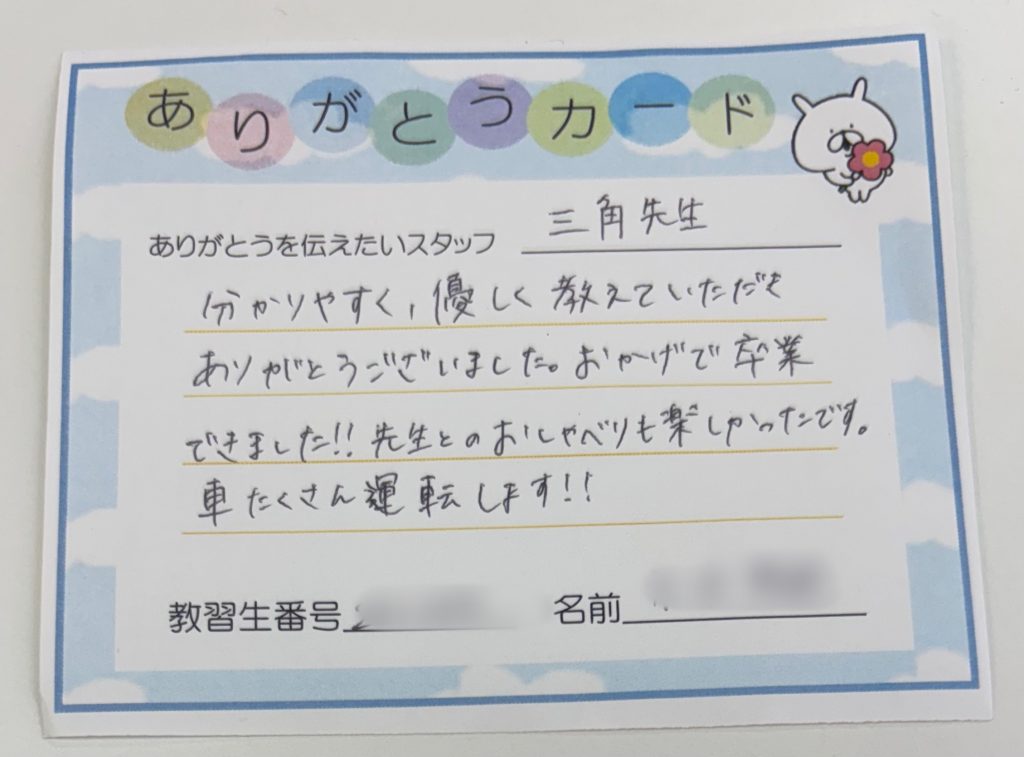 ありがとうカード
ありがとうを伝えたいスタッフ 三角先生
分かりやすく,優しく教えていただき
ありがとうございました。おかげで卒業
できました!!先生とのおしゃべりも楽しかったです。
車たくさん運転します!!
教習生番号
名前